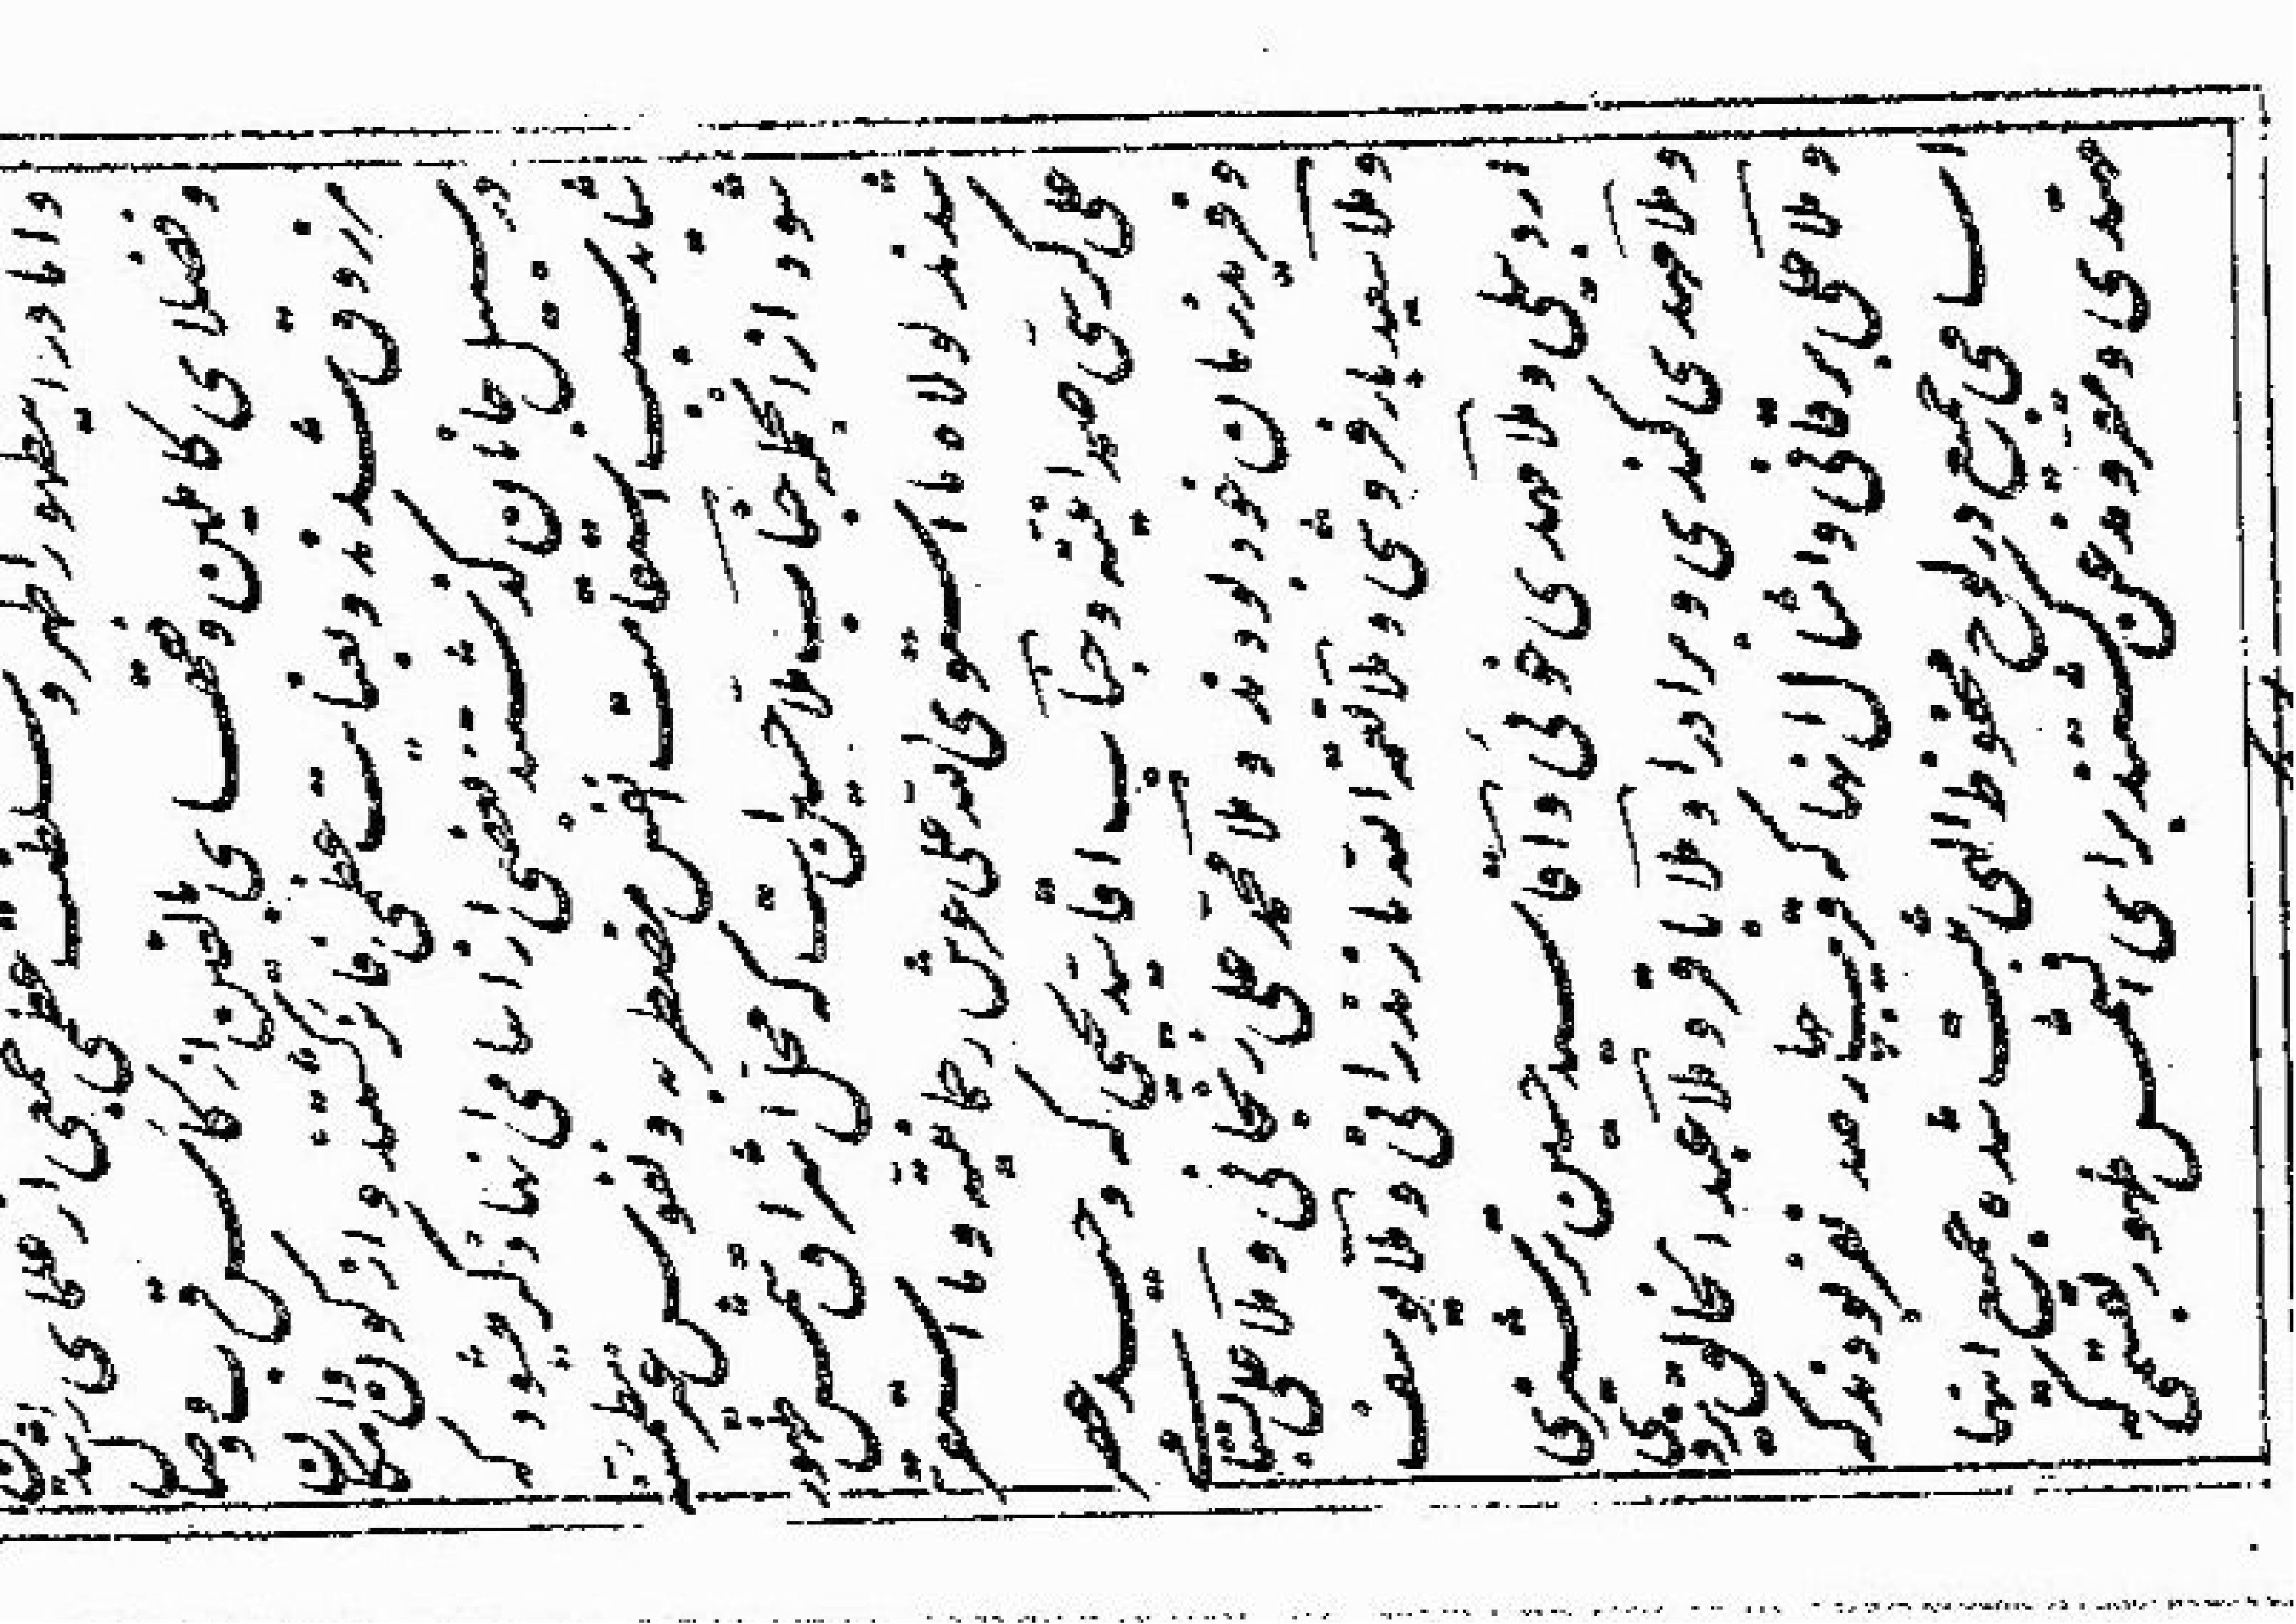 واما در این ظهور اظهر و سلطنت عظمی جمعی از علمای راشدین
وفضلای کاملین وفصحای بالغین از کاس قرب و وصال
مرزوق شدند و بعنایت عظمی فائز گشتند و از کون و امکان
در سبیل جانان گذشتند بعضی از اسامی انها ذکر میشود که
شاید سبب استقامت انفس مضطربه و نفوس غیر مطمئنه
شود از انجمله جناب ملا حسین است که محل اشراق شمس ظهور
شدند لولاه ما استوی الله علی عرش رحمانیته و ما استقر
علی کرسی صمدانیته وجناب اقا سید یحیی که وحید عصر
وفرید زمان خود بودند و ملا محمد علی زنجانی و ملا علی بسطامی
وملا سعید بارفروشی و ملا نعمة الله مازندرانی و ملا یوسف
اردبیلی و ملا مهدی خوئی و اقا سید حسین ترشیزی
وملا مهدی کندی و برادر او ملا باقر و ملا عبد الخالق یزدی
وملا علی برقانی و امثال انها که قریب چهارصد نفر بودند که
اسامی جمیع در لوح محفوظ الهی ثبت شده جمیع اینها
مهتدی و مقر و مذعن گشتند برای ان شمس ظهور بقسمی که